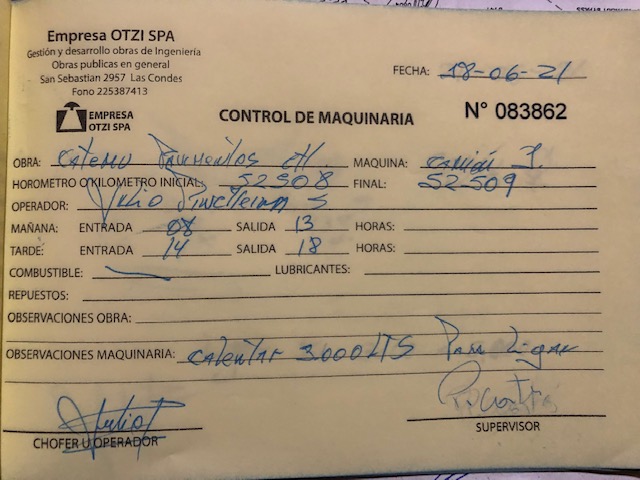 Empresa OTZI SPA
Gestión y desarrollo obras de Ingeniería
Obras publicas en general
San Sebastian 2957 Las Condes
Fono 225387413
FECHA: 28-06-21
EMPRESA
OTZI SPA
CONTROL DE MAQUINARIA
N° 083862
OBRA: MAQUINA:
HOROMETRO O KILOMETRO INICIAL: 52508 FINAL: 52509
OPERADOR: Julio S
MAÑANA: ENTRADA 08 SALIDA 13 HORAS:
TARDE: ENTRADA 14 SALIDA 18 HORAS:
COMBUSTIBLE: LUBRICANTES:
REPUESTOS:
OBSERVACIONES OBRA:
OBSERVACIONES MAQUINARIA: 3000 LTS Para
CHOFER U OPERADOR
SUPERVISOR